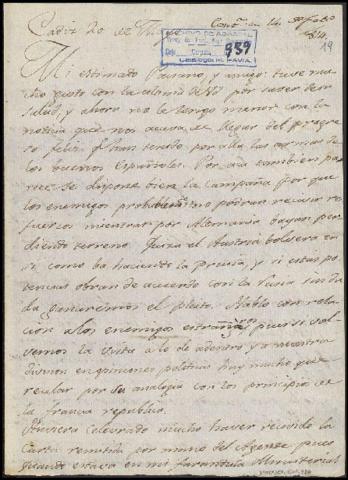 Cadiz 20 de
Cont. en 14
959
19
Mi estimado Paisano, y amigo: tuve mu
cho gusto con la de Vd por saber de su
salud, y ahora no le tengo menor con la
noticia que nos acaba de llegar del progre
so feliz q. han tenido por alla las armas de
los buenos Españoles. Por aca tambien pa
rece se dispone bien la campaña por que
los enemigos probablemte no podran recivir re
fuerzos mientras por Alemania vayan per
diendo terreno. Quiza el Austria bolvera en
si, como ha haciendo la Prusia, y si estas po
tencias obran de acuerdo con la Rusia sin du
da ganaremos el pleito. Hablo con rela
cion a los enemigos estrangeros pues si vol
vemos la vista a lo de adentro y a nuestra
division en opiniones politicas hay mucho que
recelar por su analogia con los principios de
la francia republica.
Huviera celebrado mucho haver recivido la
Carta remitida por mano del Agende pues
quando estava en mi farandula Ministerial